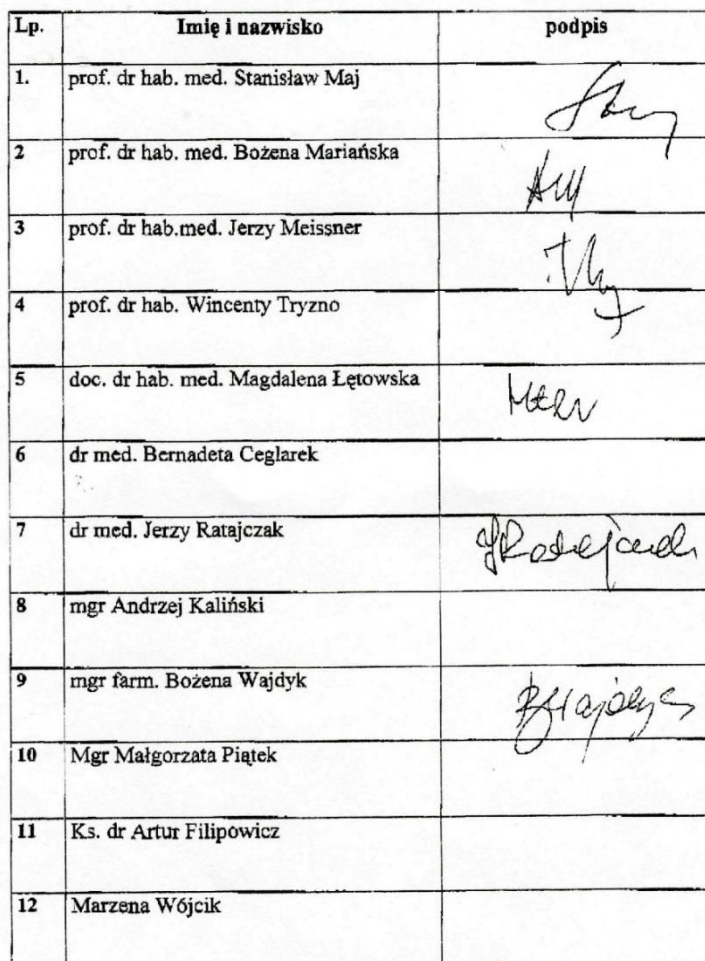 Lp. Imię i nazwisko podpis
1. prof. dr hab. med. Stanisław Maj
2 prof. dr hab. med. Bożena Mariańska
3 prof. dr hab.med. Jerzy Meissner
4 prof. dr hab. Wincenty Tryzno
5 doc. dr hab. med. Magdalena Łętowska
6 dr med. Bernadeta Ceglarek
7 dr med. Jerzy Ratajczak
8 mgr Andrzej Kaliński
9 mgr farm. Bożena Wajdyk
10 Mgr Małgorzata Piątek
11 Ks. dr Artur Filipowicz
12 Marzena Wójcik